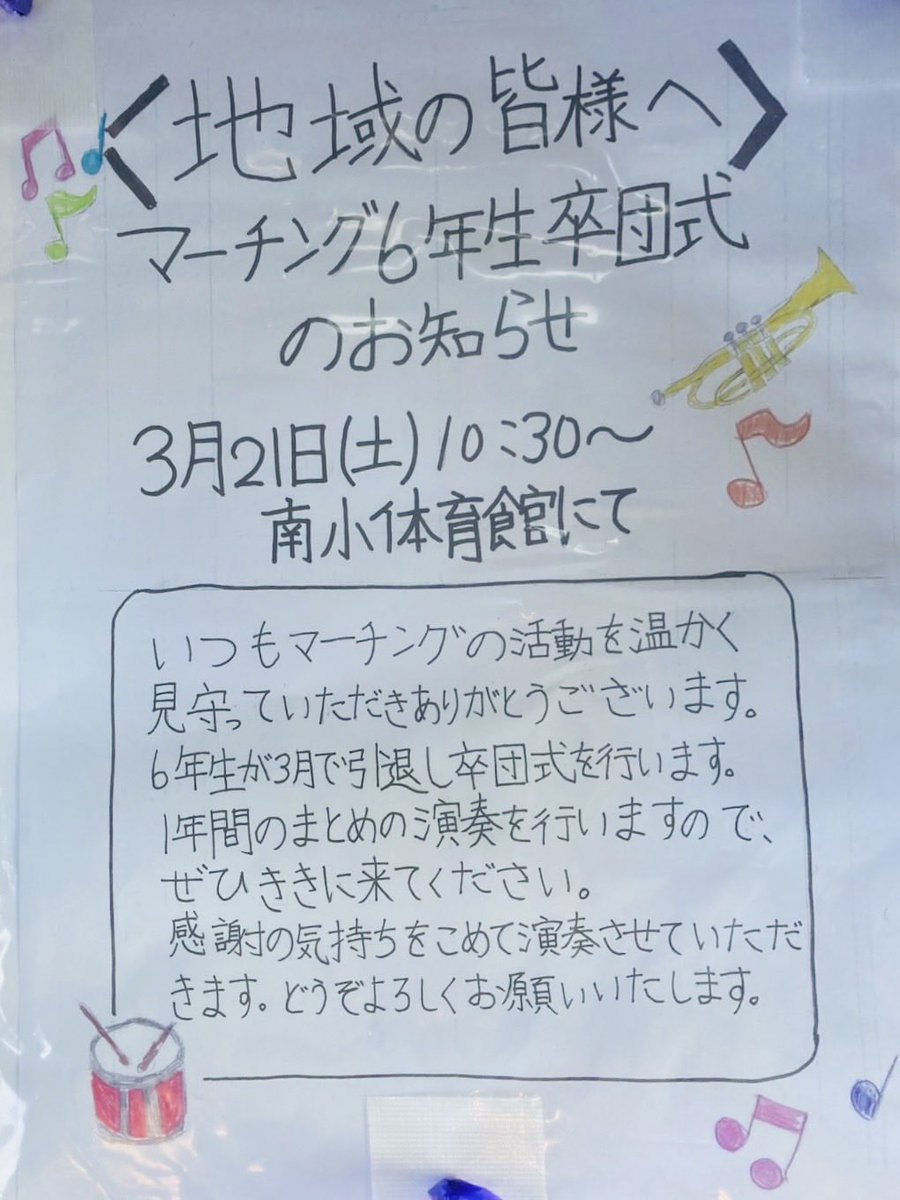 <地域の皆様へ>
マーチング6年生卒団式
のお知らせ
3月21日(土)10:30~
南小体育館にて
いつもマーチングの活動を温かく
見守っていただきありがとうございます。
6年生が3月で引退し卒団式を行います。
1年間のまとめの演奏を行いますので、
ぜひききに来てください。
感謝の気持ちをこめて演奏させていただ
きます。どうぞよろしくお願いいたします。